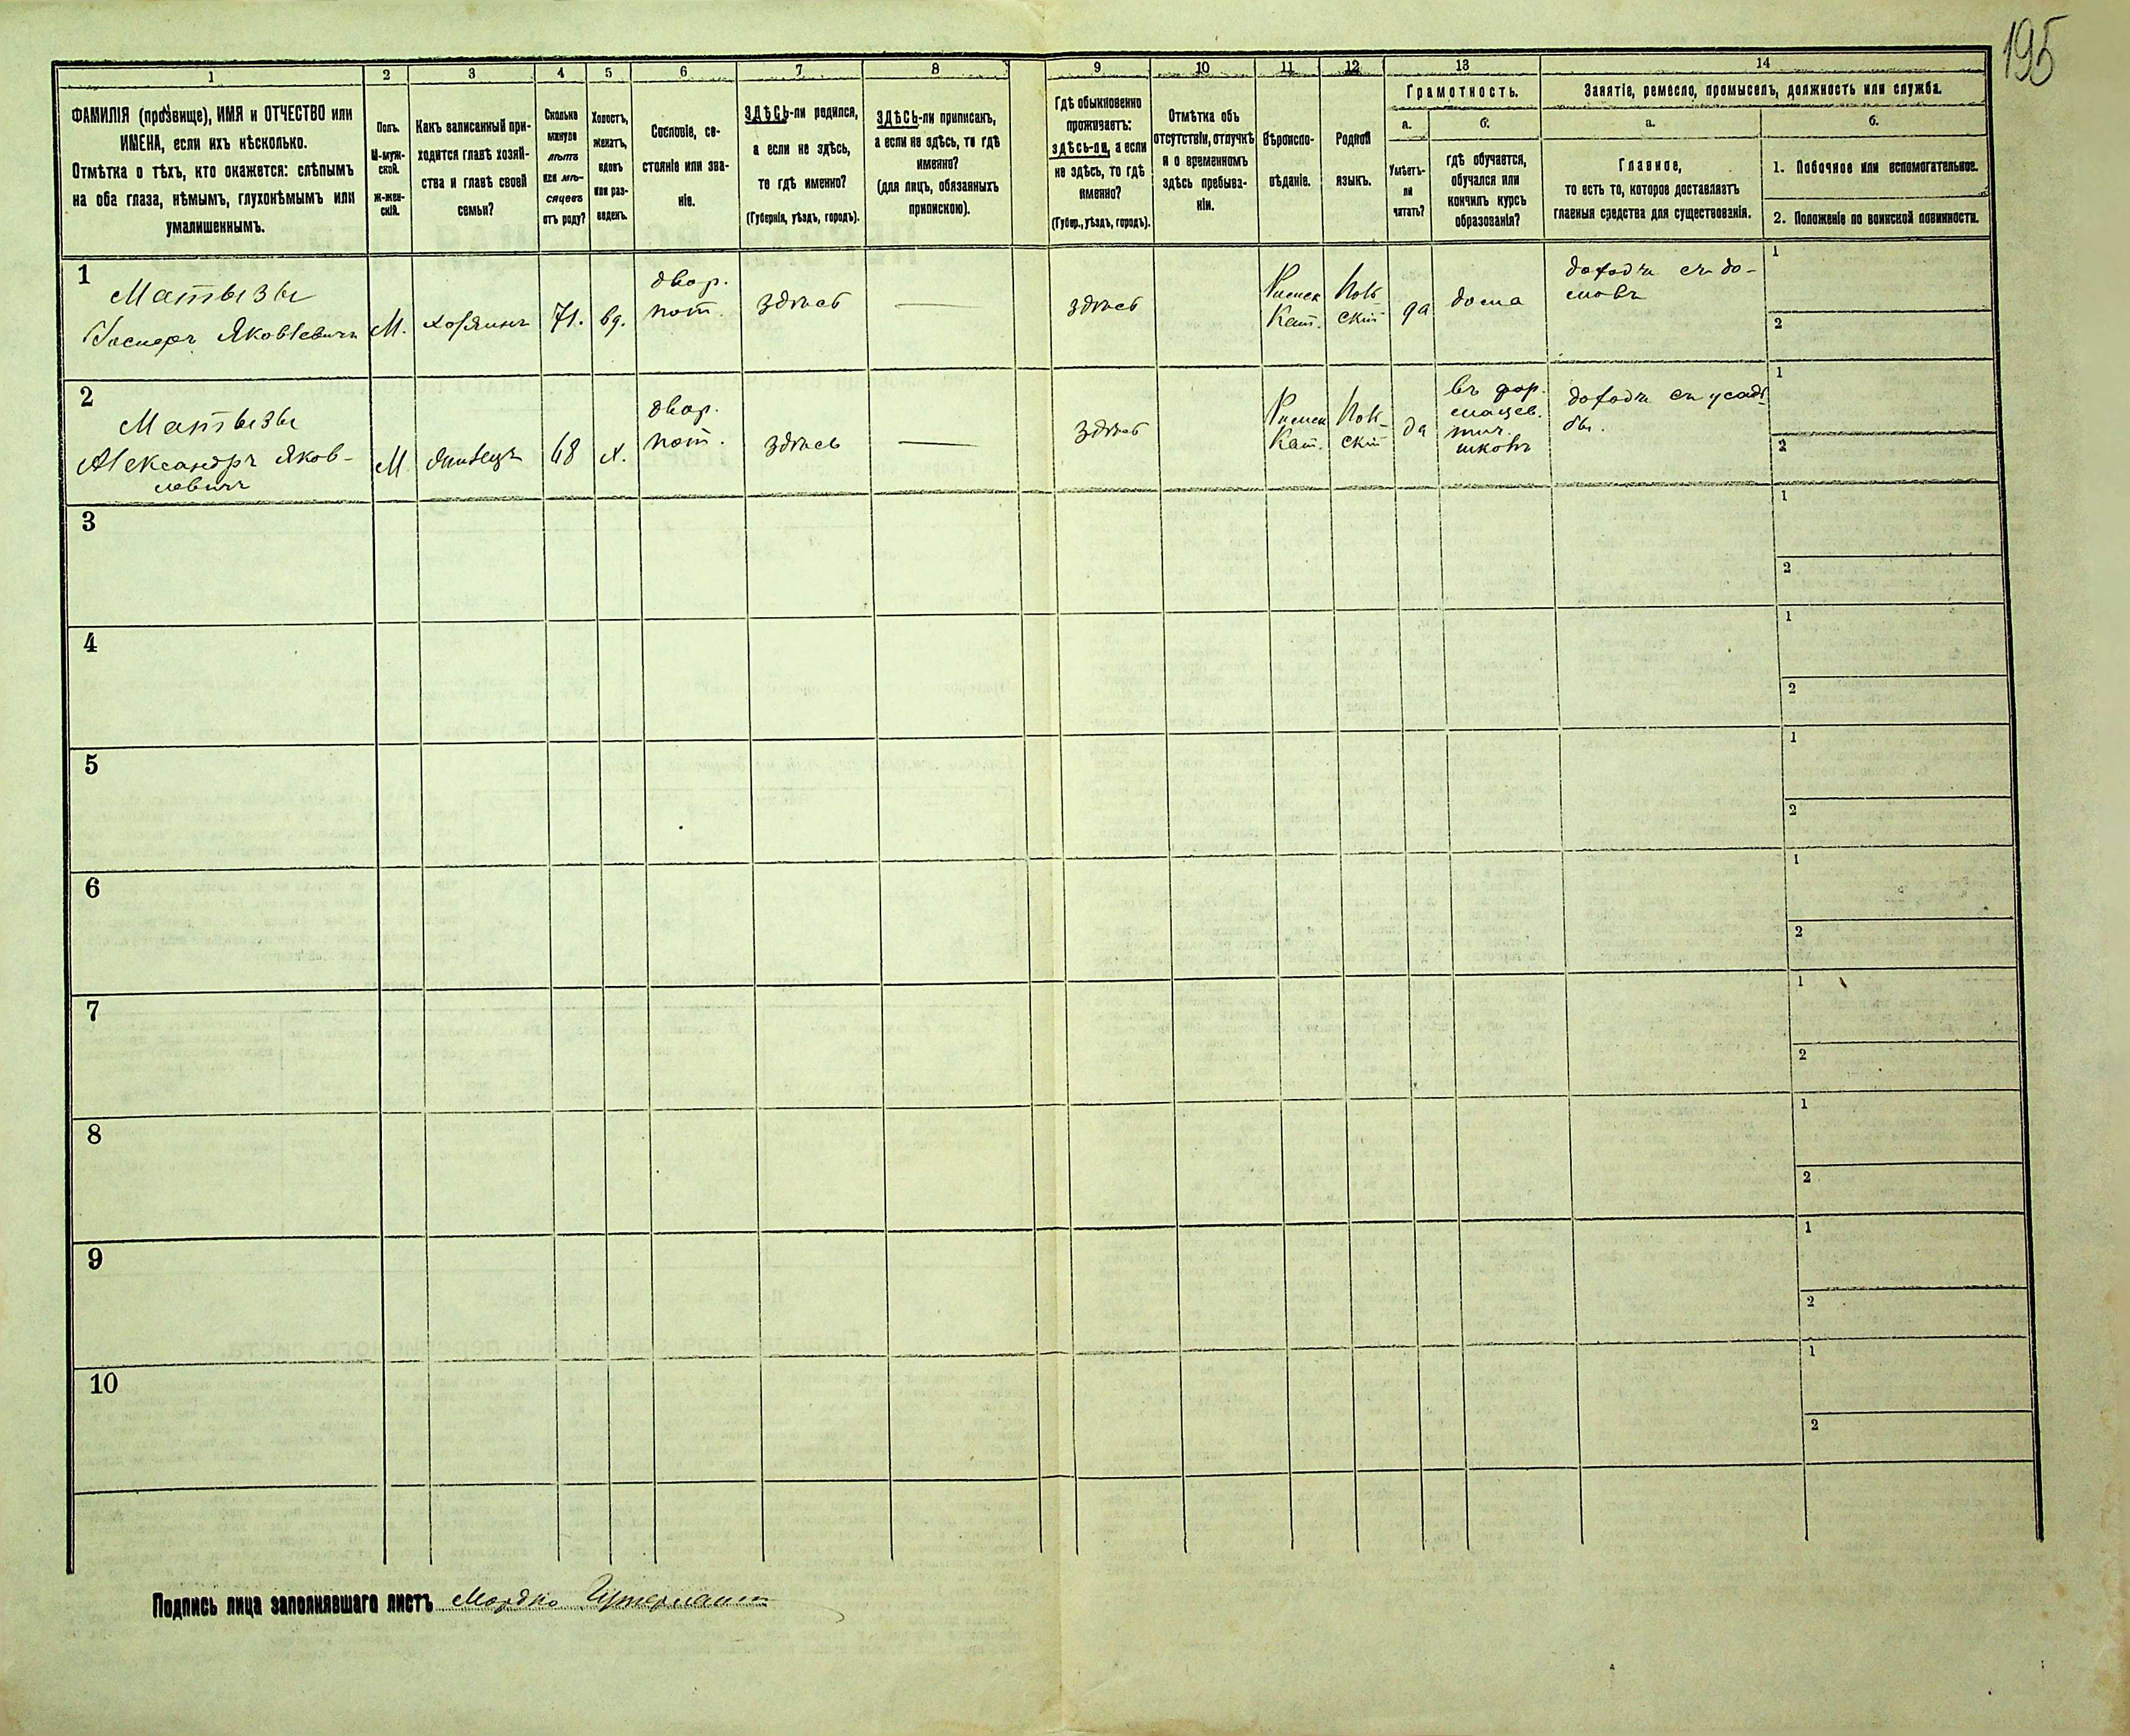 195
1 2 3 4 5 6 7 8 9 10 11 12 13 14
ФАМИЛІЯ (прозвище), ИМЯ и ОТЧЕСТВО или
ИМЕНА, если ихъ нѣсколько.
Отмѣтка о тѣхъ, кто окажется: слѣпымъ
на оба глаза, нѣмымъ, глухонѣмымъ или
умалишеннымъ.
Полъ.
М-муж-
ской.
Ж-жен-
скій.
Какъ записанный при-
ходится главѣ хозяй-
ства и главѣ своей
семьи?
Сколько
минуло
лѣтъ
или мѣ-
сяцевъ
отъ роду?
Холостъ,
женатъ,
вдовъ
или раз-
веденъ.
Сословіе, со-
стояніе или зва-
ніе.
ЗДѢСЬ-ли родился,
а если не здѣсь,
то гдѣ именно?
(Губернія, уѣздъ, городъ).
ЗДѢСЬ-ли приписанъ,
а если не здѣсь, то гдѣ
именно?
(для лицъ, обязанныхъ
припискою).
Гдѣ обыкновенно
проживаетъ:
здѣсь-ли, а если
не здѣсь, то гдѣ
именно?
(Губер., уѣздъ, городъ).
Отмѣтка объ
отсутствіи, отлучкѣ
и о временномъ
здѣсь пребыва-
ніи.
Вѣроиспо-
вѣданіе.
Родной
языкъ.
Грамотность.
а.
Умѣетъ-
ли
читать?
б.
гдѣ обучается,
обучался или
кончилъ курсъ
образованія?
Занятіе, ремесло, промыселъ, должность или служба.
а.
Главное,
то есть то, которое доставляетъ
главныя средства для существованія.
б.
1. Побочное или вспомогательное.
2. Положеніе по воинской повинности.
1
Яковлевичъ
М.
хозяинъ
71.
вд.
двор.
пот.
здѣсь
здѣсь
Римск
Кат.
Поль
скій
да
дома
доходъ съ до-
мовъ
1
2
2
Александръ Яков-
левичъ
М
68
х.
двор.
пот.
здѣсь
здѣсь
Римск
Кат.
Поль
скій
да
въ
доходъ съ усадь
бы.
1
2
3
1
2
4
1
2
5
1
2
6
1
2
7
1
2
8
1
2
9
1
2
10
1
2
Подпись лица заполнявшаго листъ Мордко